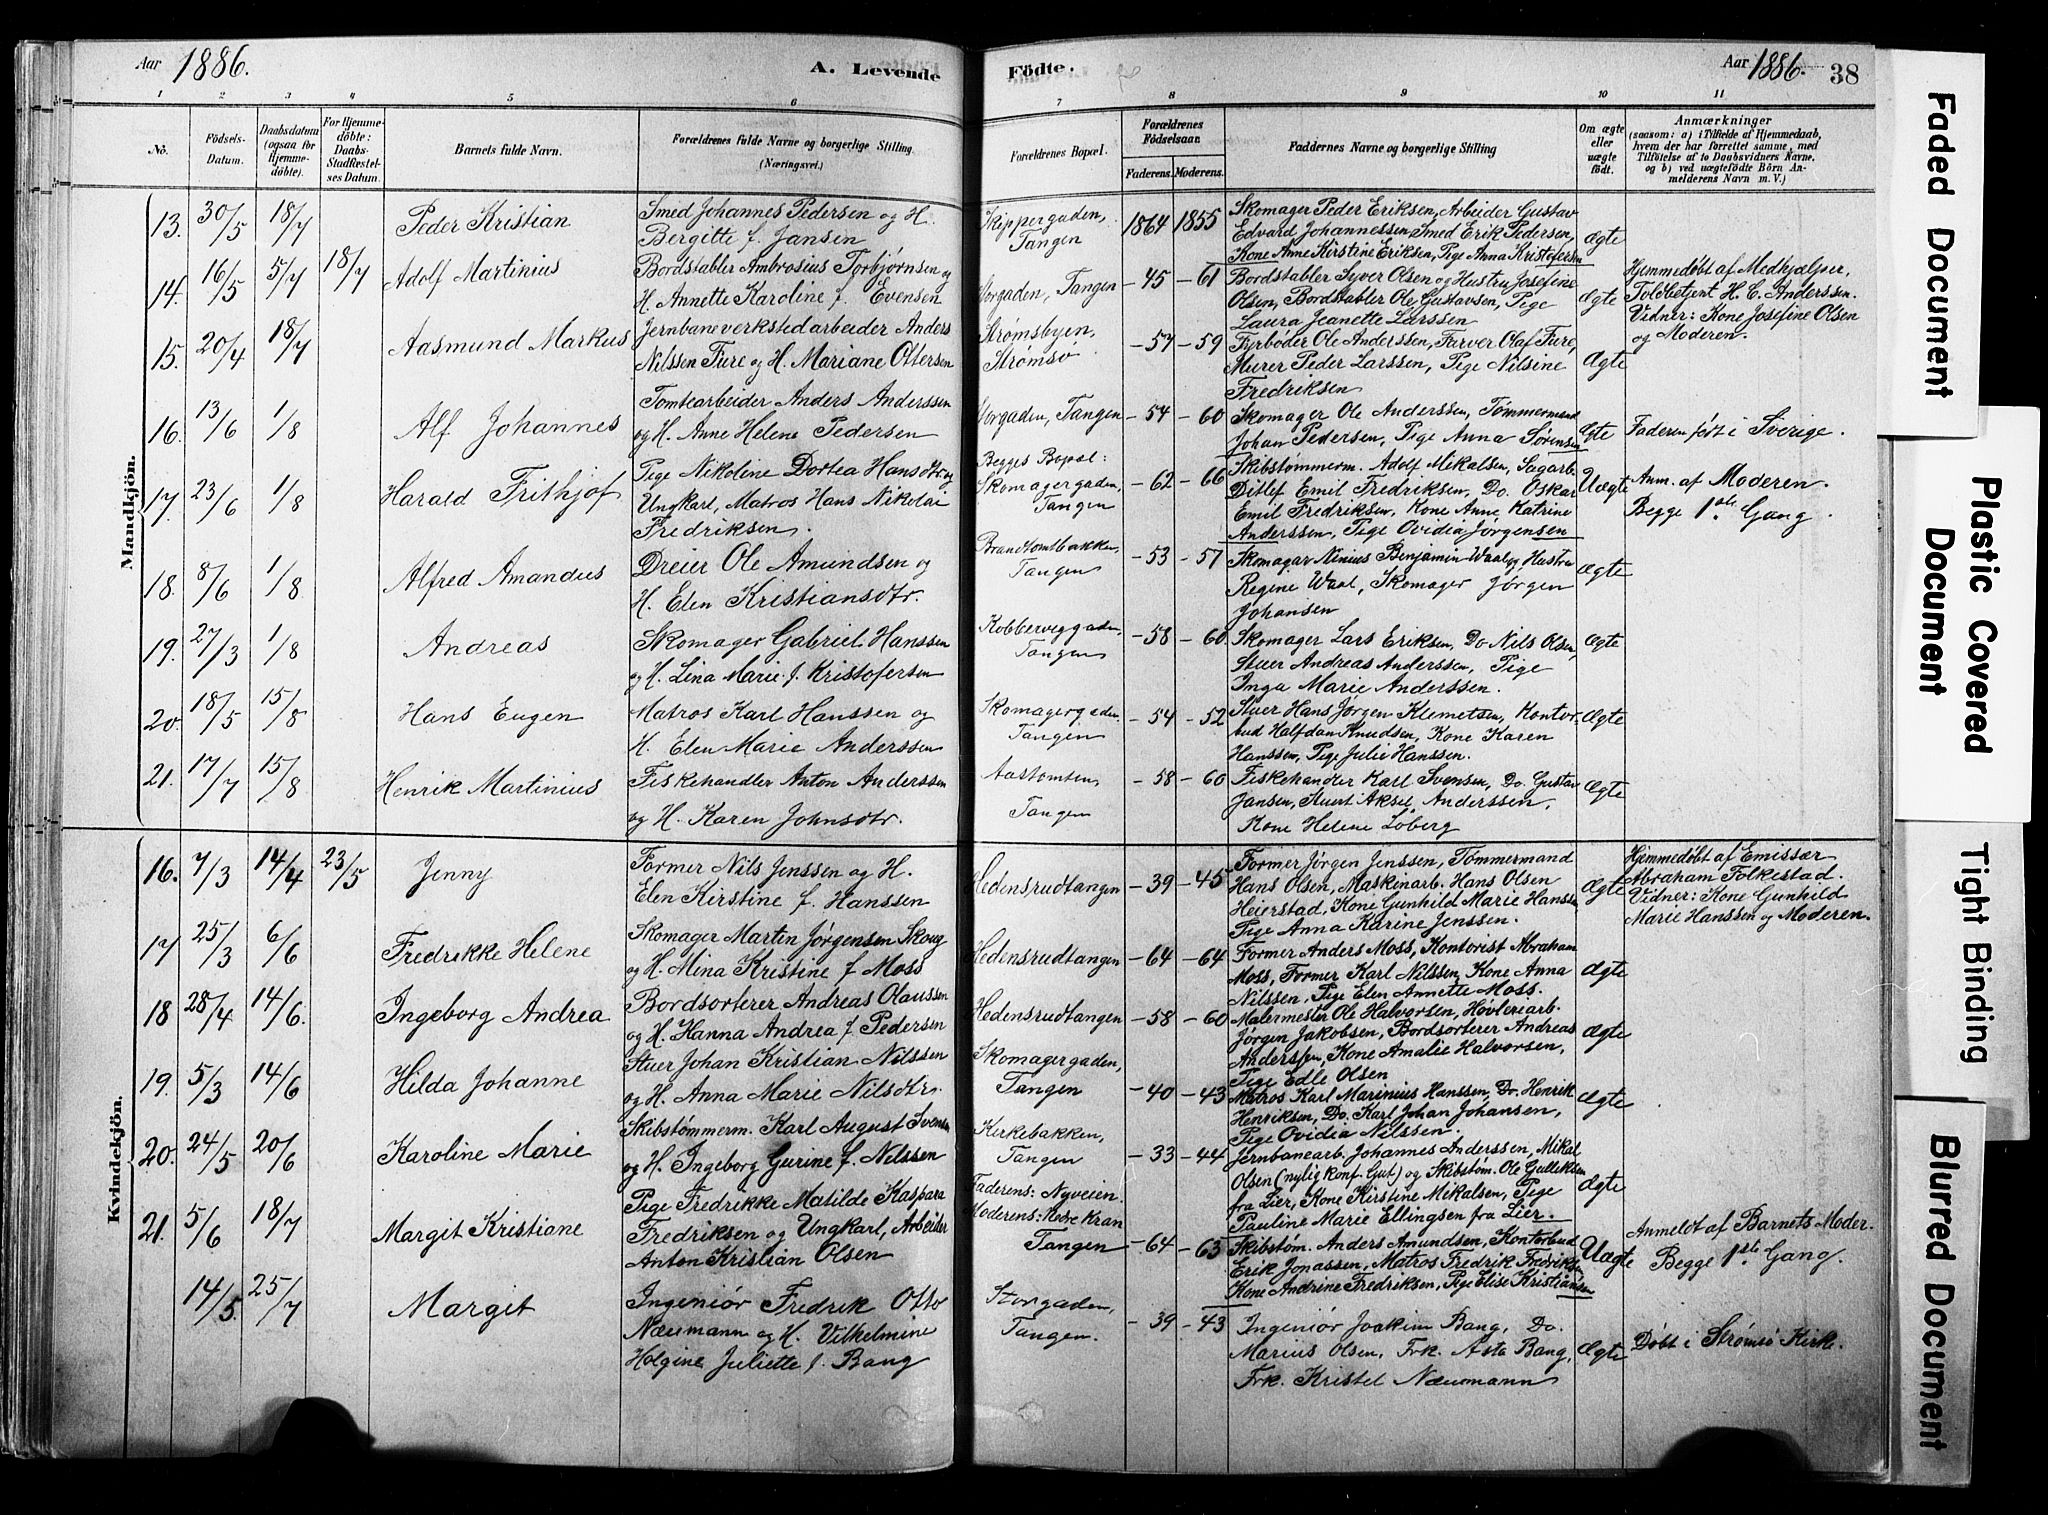 Aar 1886.
A. Levende
Födte.
Aar 1886.
38
1 2 3 4 5 6 7 8 9 10 11
No.
Födsels-Datum.
Daabsdatum (ogsaa for Hjemmedöbte).
For Hjemmedöbte: Daabs-Stadfæstelses Datum.
Barnets fulde Navn.
Forældrenes fulde Navne og borgerlige Stilling.
(Næringsvei.)
Forældrenes Bopæl.
Forældrenes Födselsaar
Faderens. Moderens.
Faddernes Navne og borgerlige Stilling
Om ægte eller uægte födt.
Anmærkninger
(saasom: a) i Tilfælde af Hjemmedaab,
hvem der har forrettet samme, med
Tilföielse af to Daabsvidners Navne,
og b) ved uægtefödte Börn Anmelderens Navn m. V.)
Mandkjön.
13. 30/5 18/7 Peder Kristian
Smed Johannes Pedersen og H.
Bergitte f. Jansen
Skippergaden,
Tangen
1864 1855
Skomager Peder Eriksen, Arbeider Gustav
Edvard Johannessen, Smed Erik Pedersen,
Kone Anne Kirstine Eriksen, Pige Anna Kristofersen
Ægte
14. 16/5 5/7 18/7 Adolf Martinius
Bordstabler Ambrosius Torbjørnsen og
H. Annette Karoline f. Evensen
Storgaden, Tangen
-45 -61
Bordstabler Syver Olsen og Hustru Josefine
Olsen, Bordstabler Ole Gustavsen, Pige
Laura Jeanette Larssen
Ægte
Hjemmedøbt af Medhjælper,
Toldbetjent H. C. Anderssen.
Vidner: Kone Josefine Olsen
og Moderen.
15. 20/4 18/7 Aasmund Markus
Jernbaneverkstedarbeider Anders
Nilssen Fure og H. Mariane Ottersen
Strømsbyen,
Strømsø
-57 -59
Fyrbøder Ole Anderssen, Farver Olaf Fure,
Murer Peder Larssen, Pige Nilsine
Fredriksen
Ægte
16. 13/6 1/8 Alf Johannes
Tomtearbeider Anders Anderssen
og H. Anne Helene Pedersen
Storgaden, Tangen
-54 -60
Skomager Ole Anderssen, Tømmermand
Johan Pedersen, Pige Anna Sørensen
Ægte
Faderen født i Sverige.
17. 23/6 1/8 Harald Frithjof
Pige Nikoline Dortea Hansdtr. og
Ungkarl, Matros Hans Nikolai
Fredriksen.
Begges Bopæl:
Skomagergaden,
Tangen
-62 -66
Skibstømmerm. Adolf Mikalsen, Sagarb.
Ditlef Emil Fredriksen, Do. Oskar
Emil Fredriksen, Kone Anne Katrine
Anderssen, Pige Ovidia Jørgensen
Uægte
Anm. af Moderen.
Begge 1ste Gang.
18. 8/6 1/8 Alfred Amandus
Dreier Ole Amundsen og
H. Elen Kristiansdtr.
Brandtomtbakken,
Tangen
-53 -57
Skomager Ninius Benjamin Waal og Hustru
Regine Waal, Skomager Jørgen
Johansen
Ægte
19. 27/3 1/8 Andreas
Skomager Gabriel Hanssen
og H. Lina Marie f. Kristofersen
Kobberviggaden,
Tangen
-58 -60
Skomager Lars Eriksen, Do Nils Olsen,
Stuer Andreas Anderssen, Pige
Inga Marie Anderssen.
Ægte
20. 18/5 15/8 Hans Eugen
Matros Karl Hanssen og
H. Elen Marie Anderssen
Skomagergaden,
Tangen
-54 -52
Stuer Hans Jørgen Klemetsen, Kontor-
bud Halfdan Knudsen, Kone Karen
Hanssen, Pige Julie Hanssen.
Ægte
21. 17/7 15/8 Henrik Martinius
Fiskehandler Anton Anderssen
og H. Karen Johnsdtr.
Aastomten,
Tangen
-58 -60
Fiskehandler Karl Svensen, Do. Gustav
Jansen, Stuert Aksel Anderssen,
Kone Helene Løberg
Ægte
Kvindekjön.
16. 7/3 14/4 23/5 Jenny
Former Nils Jenssen og H.
Elen Kirstine f. Hanssen
Hedensrudtangen
-39 -45
Former Jørgen Jenssen, Tømmermand
Hans Olsen, Maskinarb. Hans Olsen
Heierstad, Kone Gunhild Marie Hanssen
Pige Anna Karine Jenssen.
Ægte
Hjemmedøbt af Emissær
Abraham Folkestad.
Vidner: Kone Gunhild
Marie Hanssen og Moderen.
17 25/3 6/6 Fredrikke Helene
Skomager Martin Jørgensen Skoug
og H. Mina Kristine f. Moss
Hedensrudtangen
-64 -64
Former Anders Moss, Kontorist Abraham
Moss, Former Karl Nilssen, Kone Anna
Nilssen, Pige Elen Annette Moss.
Ægte
18 28/4 14/6. Ingeborg Andrea
Bordsorterer Andreas Olaussen
og H. Hanna Andrea f. Pedersen
Hedensrudtangen
-58 -60
Malermester Ole Halvorsen, Høvleriarb.
Jørgen Jakobsen, Bordsorterer Andreas
Anderssen, Kone Amalie Halvorsen,
Pige Edle Olsen
Ægte
19. 5/3 14/6 Hilda Johanne
Stuer Johan Kristian Nilssen
og H. Anna Marie Nilsdtr.
Skomagergaden,
Tangen
-40 -43
Matros Karl Marinius Hanssen, Do. Henrik
Henriksen, Do. Karl Johan Johansen,
Pige Ovidia Nilssen.
Ægte
20. 24/5 20/6 Karoline Marie
Skibstømmerm. Karl August Svensen
og H. Ingeborg Gurine f. Nilssen
Kirkebakken,
Tangen
-33 -44
Jernbanearb. Johannes Anderssen, Mikal
Olsen (nylig konf. Gut) og Skibstøm. Ole Gulliksen
fra Lier, Kone Kirstine Mikalsen, Pige
Pauline Marie Ellingsen fra Lier.
Ægte
21. 5/6 18/7 Margit Kristiane
Pige Fredrikke Matilde Kaspara
Fredriksen og Ungkarl, Arbeider
Anton Kristian Olsen
Faderens: Nyveien.
Moderens: Nedre Kran
Tangen
-64 -63
Skibstøm. Anders Amundsen, Kontorbud
Erik Jonassen, Matros Fredrik Fredriksen
Kone Andrine Fredriksen, Pige Elise Kristiansen
Uægte
Anmeldt af Barnets Moder.
Begge 1ste Gang.
14/5. 25/7 Margit
Ingeniør Fredrik Otto
Næumann og H. Vilhelmine
Holgine Juliette f. Bang
Storgaden,
Tangen.
-39 -43
Ingeniør Joakim Bang, Do.
Marius Olsen, Frk. Asta Bang,
Frk. Kristel Næumann
Ægte
Døbt i Strømsø Kirke.
Faded Document
Plastic Covered Document
Tight Binding
Blurred Document